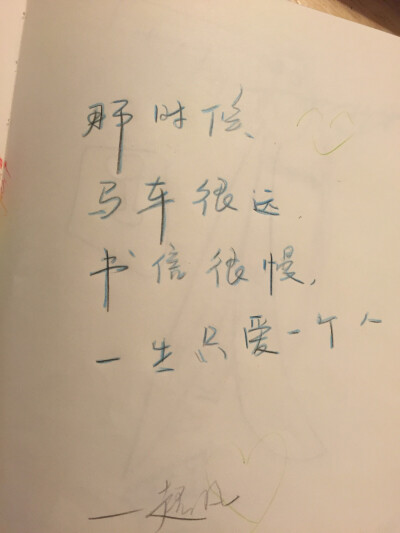 那时候、
马车很远.
书信很慢,
一生只爱一个人
一起